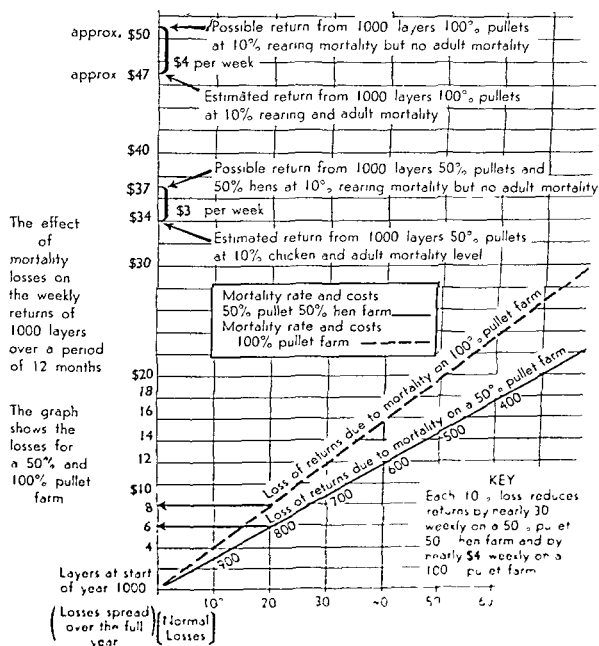 approx. $50
Possible return from 1000 layers 100% pullets
at 10% rearing mortality but no adult mortality
$4 per week
approx $47
Estimated return from 1000 layers 100% pullets
at 10% rearing and adult mortality
$40
Possible return from 1000 layers 50% pullets and
50% hens at 10% rearing mortality but no adult mortality
$37
$3 per week
$34
Estimated return from 1000 layers 50% pullets
at 10% chicken and adult mortality level
$30
The effect
of
mortality
losses on
the weekly
returns of
1000 layers
over a period
of 12 months
The graph
shows the
losses for
a 50% and
100% pullet
farm
Mortality rate and costs
50% pullet 50% hen farm
Mortality rate and costs
100% pullet farm
$20
18
16
14
12
$10
8
6
4
Loss of returns due to mortality on 100% pullet farm
Loss of returns due to mortality on a 50% pullet farm
900
800
700
600
500
400
KEY
Each 10% loss reduces
returns by nearly 30
weekly on a 50% pullet
50 hen farm and by
nearly $4 weekly on a
100 pullet farm
Layers at start
of year 1000
10%
20
30
40
50
60
(Losses spread
over the full
year)
[Normal
Losses]